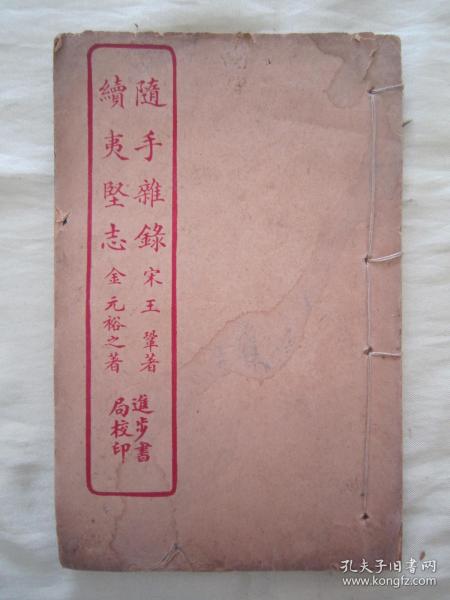 隨手雜錄宋王鞏著
續夷堅志金元裕之著
進步書
局校印
孔夫子旧书网
www.kongfz.com